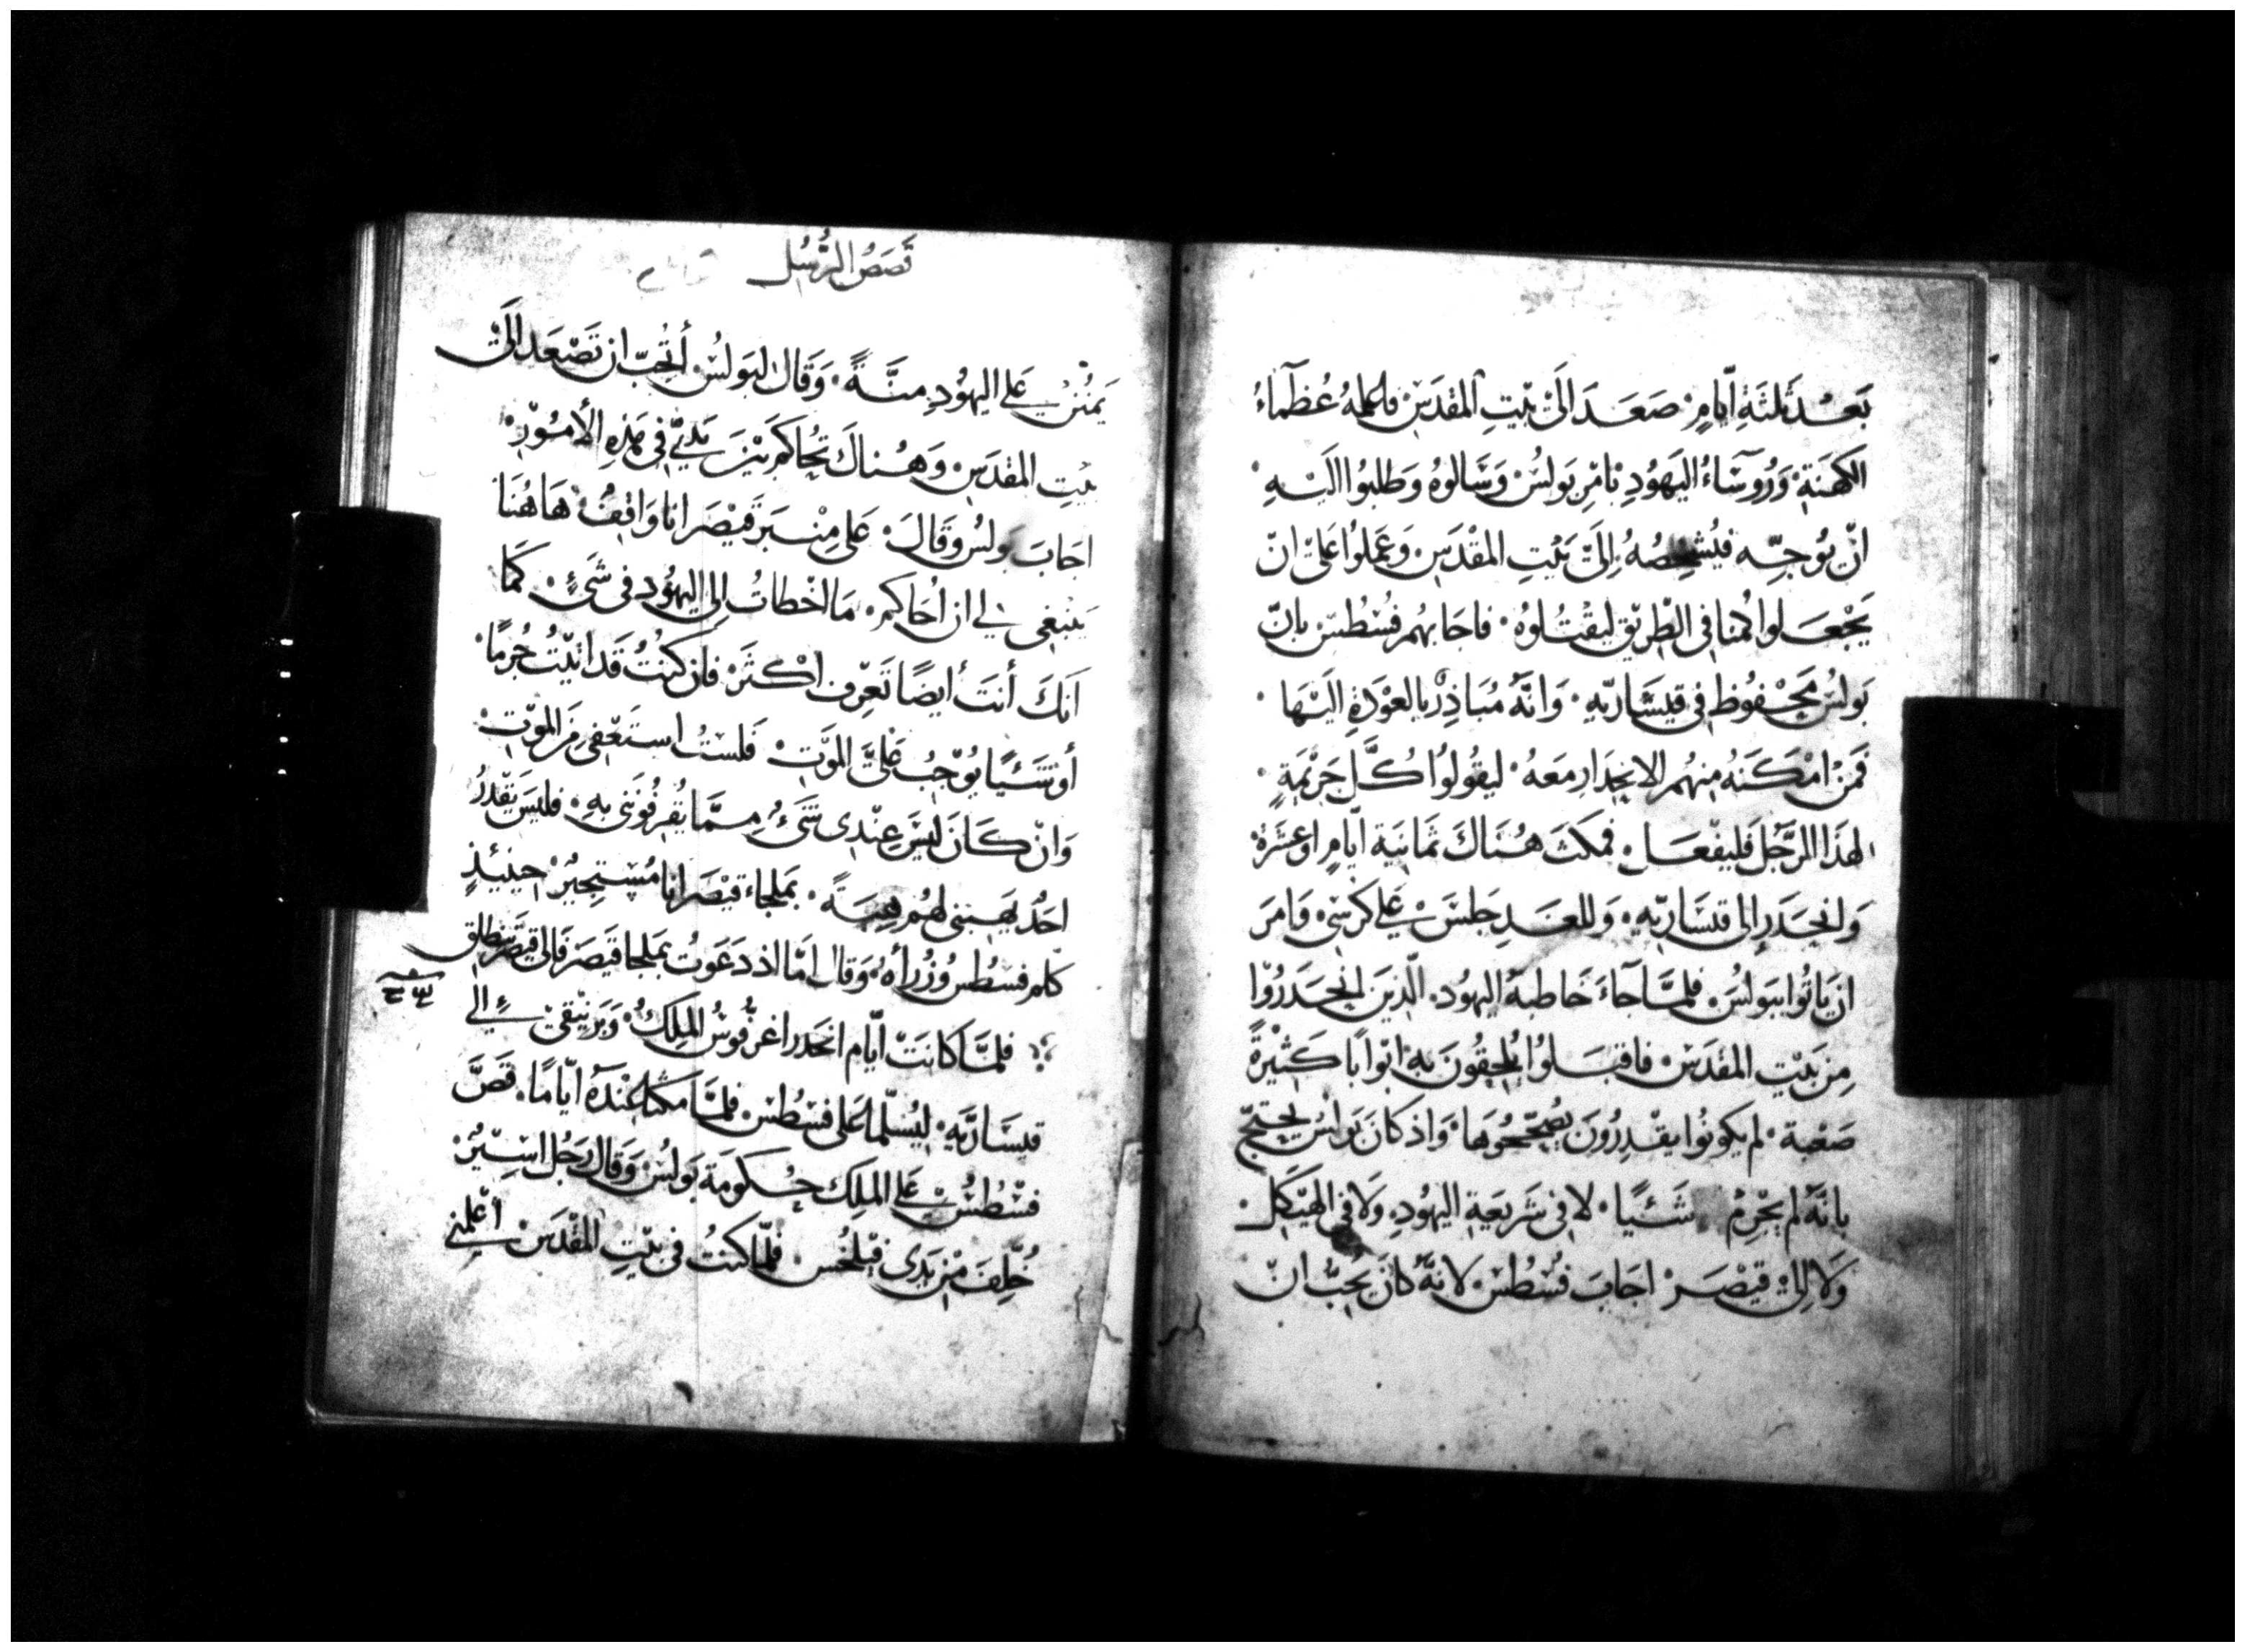 بَعْدَ ثَلثَةِ اَيّامٍ صَعَدَ الَىْ بَيْتِ المَقْدَسْ فاعلمهُ عُظَمآءُ
الكَهَنَةِ وَرُوسَآءُ اليَهُودِ بامْرِ بَولُسْ وَسَالوهُ وَطلبُوا الَيْهِ
انْ يُوَجِّه فيُشخِصُهُ اِلَىَ بَيْتِ المقْدَسْ وَعَملُوا عَلىْ انْ
يَجْعَلوا كُمنا فى الطّريْقِ ليَقْتُلوُهُ فاجابهُم فسْطُسْ بانّ
بَولُسْ مَحْفُوظ فى قيْسَاريّهِ وَانَّهُ مُبَادِرْ بالعوْدَةِ الَيْهَا
فَمَنْ امْكَنَهُ مِنهُم الانحِدَارِ مَعَهُ ليقُولوُا كُلَّ جَرِيْمَةٍ
لهَذا الرَّجُل فَليفْعَل فمكثَ هُنَاكَ ثَمَانيَة ايّامٍ اوْ عَشَرَهْ
وَانحَدَر اِلى قيسَاريّهِ وَللغَدِ جَلسَ عَلى كرْسىْ وَامَرَ
انْ يَاتُوا ببَولُسْ فلمَّا جَآءَ خَاطبَهُ اليهُود الّذينَ انْحَدَرُوْا
مِن بَيْتِ المقْدَسْ فاقبَلوُا يُلحِقُونَ بِهِ ابْوَابًا كَثِيْرةً
صَعْبة لم يكونُوا يقْدِرُونَ يُصَحّحُوهَا وَاذ كانَ بَولُسْ يَحْتَجّ
بانّهُ لم يجْرِمْ شَئيًا لا فى شَريعَةِ اليهُودِ وَلا فى الهَيْكَل
وَلا اِلىْ قيْصَرْ اجَابَ فسْطُسْ لانّهُ كانَ يُحِبُّ انْ
قَصَصُ الرُّسُل
يَمْنُنْ عَلى اليهُودِ مِنَّةً وَقَال لبَولُسْ أتُحِبّ ان تَصْعَد الَىْ
بَيْتِ المقْدَسْ وَهُناكَ تُحَاكَم بَيْنَ يَدَيَّ فى هَذِهِ الأمُوْرِ
اجَابَ بَولسُ وَقَالَ عَلى مِنْبَر قَيْصَر انا وَاقِفُ هَاهُنَا
يَنبَغى لى ان اُحَاكم مَا اخْطاتُ الى اليهُود فى شَىءٍ كَمَا
انَكَ أنتَ أيضًا تَعْرِف اكْثَرْ فان كنتُ قَد اتَيْتُ جُرمًا
أو شَئيًا يُوْجبُ عَلىَّ المَوْت فَلستُ استَعْفى مِنَ الموْتِ
وَانْ كَانَ ليْسَ عِنْدِى شَىءُ مِمَّا يُقرفُونَنى بهِ فليسَ يَقْدرُ
احَدٌ يَهَبنى لهُم هِبَةً بمَلجاء قيْصَر انا مُسْتجِيْرْ حينيذٍ
كلم فسْطُس وُزُرَأهُ وَقال امّا اذ دَعَوتُ بمَلجا قيَصَر فَالى قيْصَر ينطلِق
فلمّا كانَتْ ايّام انحَدَر اغرُفوسُ المِلكُ وَبَرنيْقىْ الى
قيسَاريّه ليُسَلّما عَلى فسْطُسْ فلمَّا مَكثا عِنْدَهُ ايّامًا قَصَّ
فسْطُسْ عَلى الملِك حُكومَة بَولُسْ وَقال رَجُل اسِيْرْ
خُلِفَ مِنْ يَدَى فيْلخُس فلمّا كنتُ فى بَيْتِ المقْدَسْ اعْلمَنى